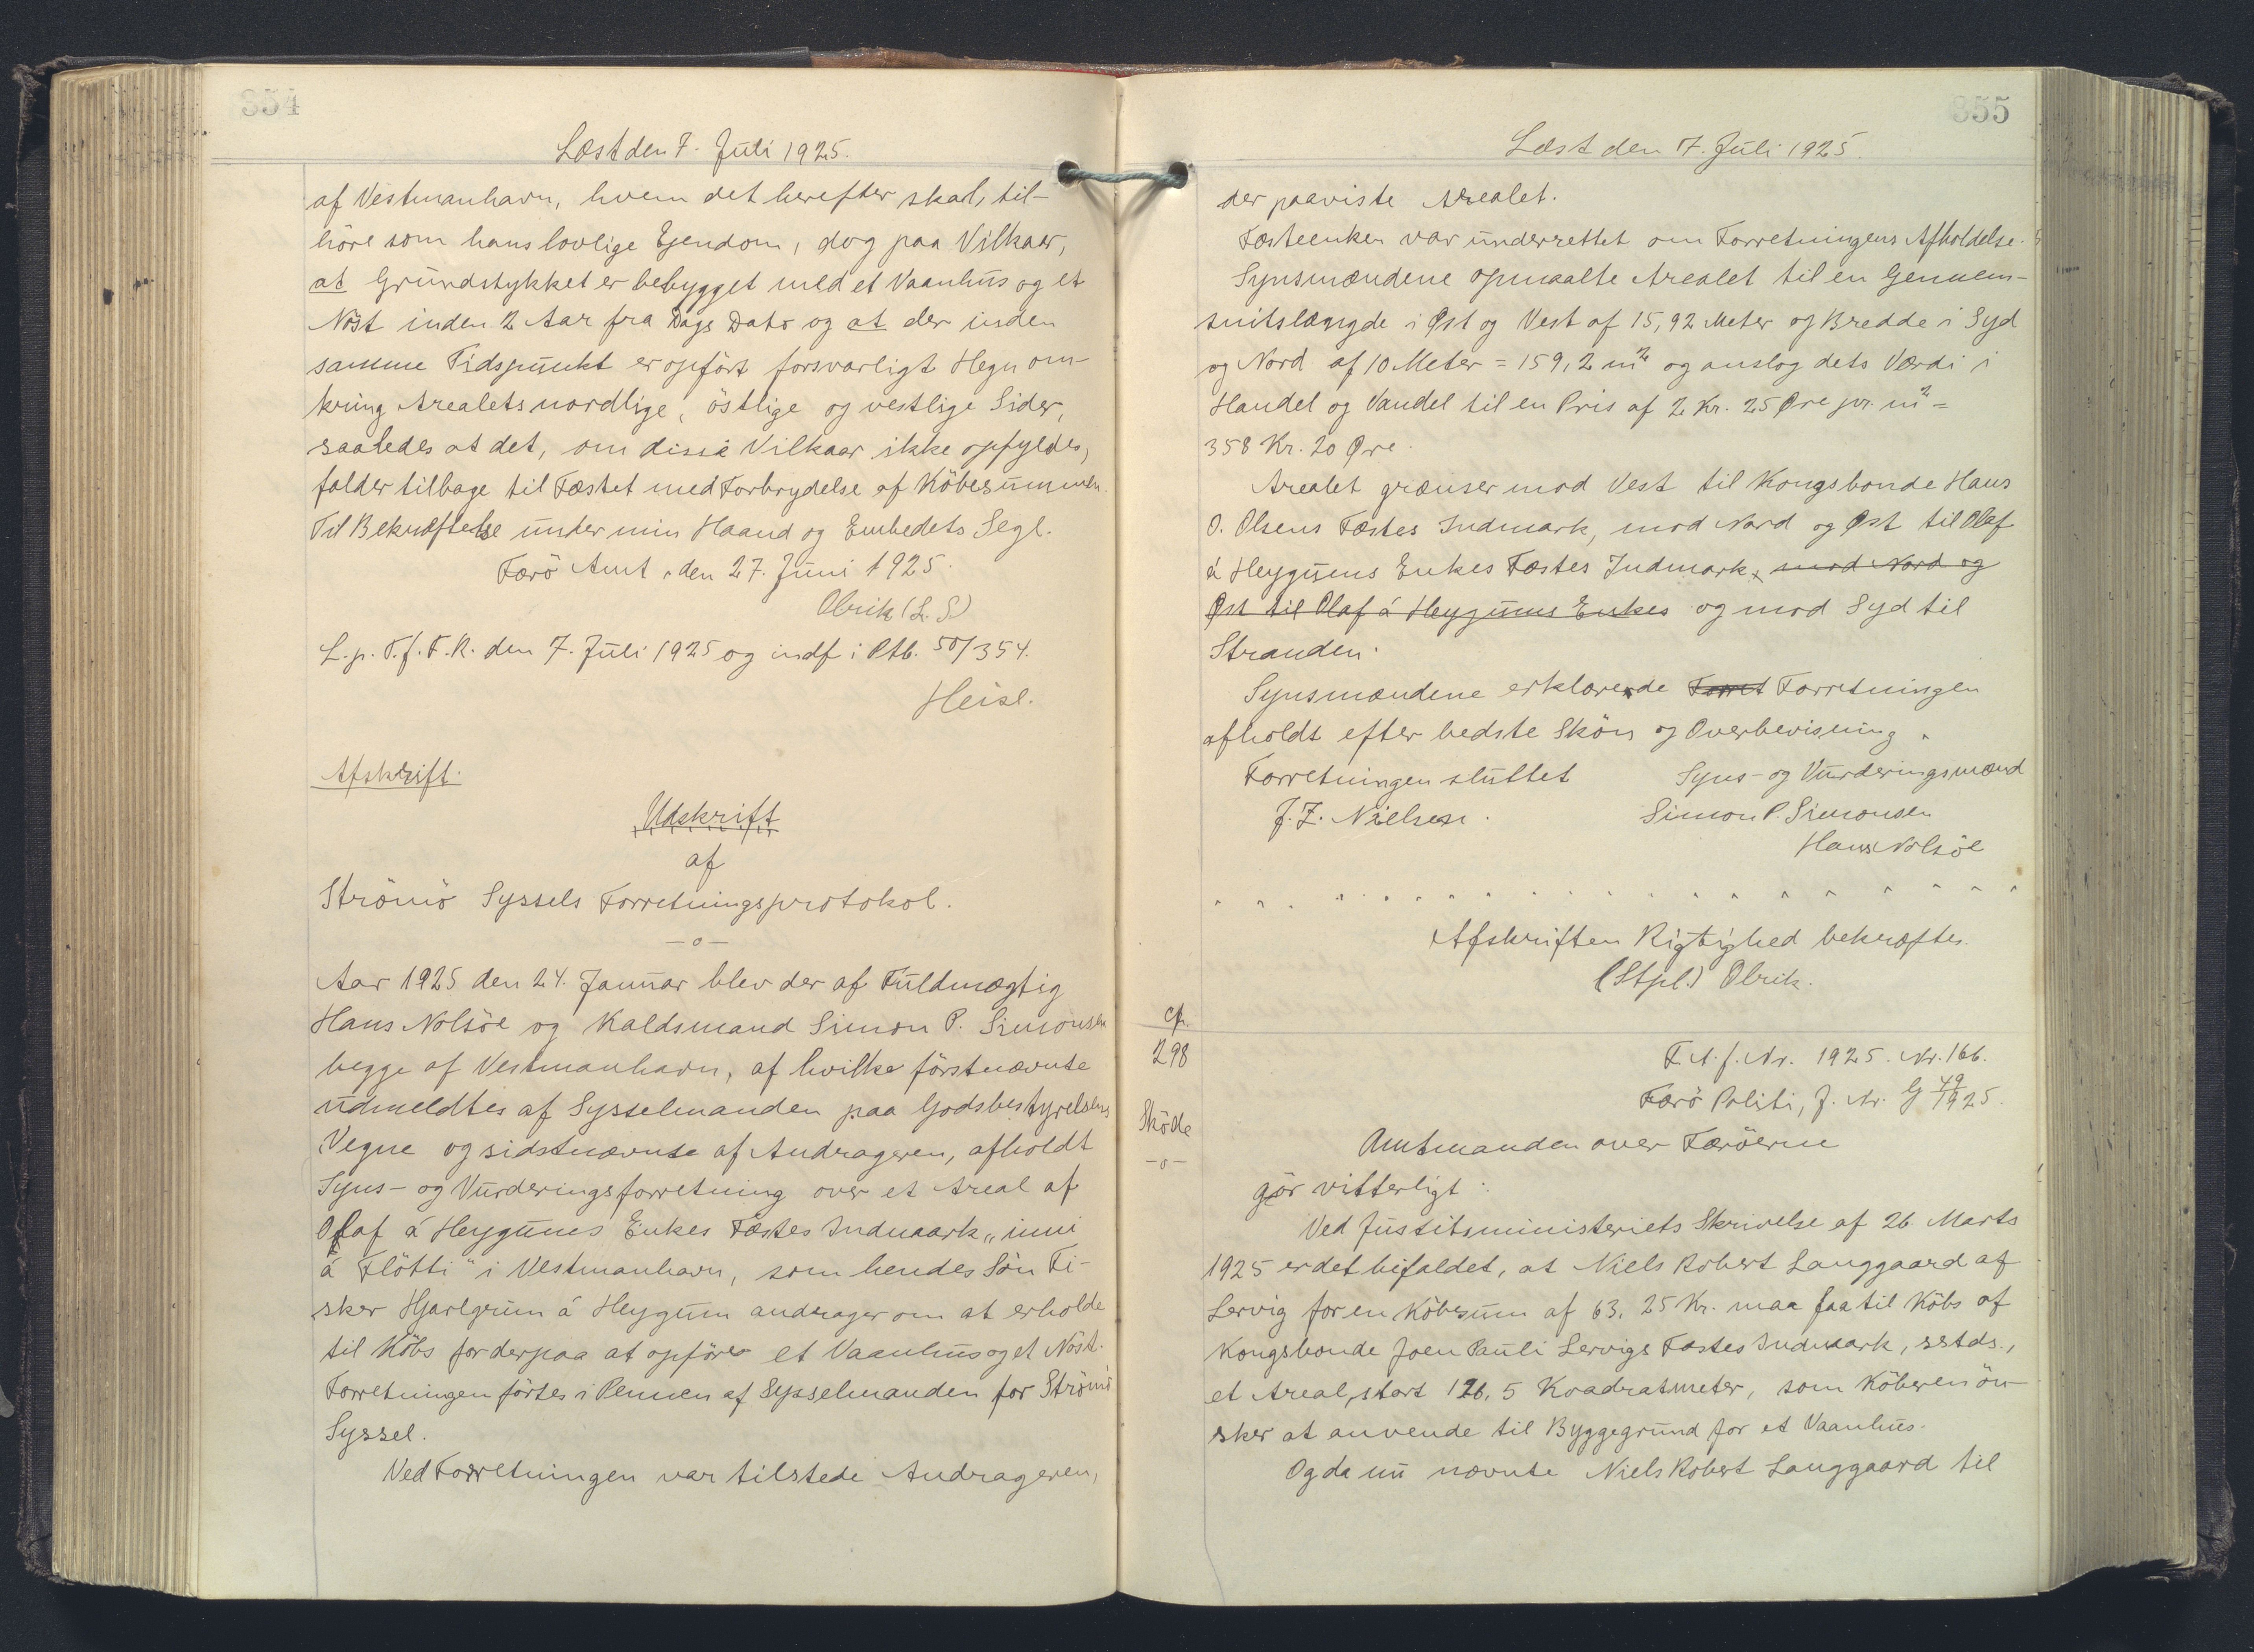 354
Læst den 7. Juli 1925.
af Vestmanhavn, hvem det herefter skal til-
höre som hans lovlige Ejendom, dog paa Vilkaar,
at Grundstykket er bebygget med et Vaanhus og et
Nöst inden 2 Aar fra Dags Dato og at der inden
samme Tidspunkt er opfört forsvarligt Hegn om-
kring Arealets nordlige, östlige og vestlige Sider,
saaledes at det, om disse Vilkaar ikke opfyldes,
falder tilbage til Fæstet med Forbrydelse af Köbesummen.
Til Bekræftelse under min Haand og Embedets Segl.
Færö Amt, den 27. Juni 1925.
Olrik (L.S)
L. p. T. f. F. R. den 7. Juli 1925 og indf i Ptb. 50/354.
Heise.
Afskrift.
Udskrift
af
Strömö Syssels Forretningsprotokol.
—o—
Aar 1925 den 24. Januar blev der af Fuldmægtig
Hans Nolsöe og Kaldsmand Simon P. Simonsen
begge af Vestmanhavn, af hvilke förstnævnte
udmeldtes af Sysselmanden paa Godsbestyrelsens
Vegne og sidstnævnte af Andrageren, afholdt
Syns- og Vurderingsforretning over et Areal af
Olaf á Heygums Enkes Fæstes Indmark „inni
á Flötti" i Vestmanhavn, som hendes Sön Fi-
sker Hjarlgrim á Heygum andrager om at erholde
til Köbs for derpaa at opföre et Vaanhus og et Nöst.
Forretningen förtes i Pennen af Sysselmanden for Strömö
Syssel.
Ved Forretningen var tilstede Andrageren,
355
Læst den 7. Juli 1925.
der paaviste Arealet.
Fæsteenken var underrettet om Forretningens Afholdelse.
Synsmændene opmaalte Arealet til en Gennem-
snitslængde i Øst og Vest af 15,92 Meter og Bredde i Syd
og Nord af 10 Meter = 159,2 m² og anslog dets Værdi i
Handel og Vandel til en Pris af 2 Kr. 25 Øre pr. m² =
358 Kr. 20 Øre.
Arealet grænser mod Vest til Kongsbonde Hans
O. Olsens Fæstes Indmark, mod Nord og Øst til Olaf
á Heygums Enkes Fæstes Indmark, mod Nord og
Øst til Olaf á Heygums Enkes og mod Syd til
Stranden.
Synsmændene erklærede Forret Forretningen
afholdt efter bedste Skön og Overbevisning.
Forretningen sluttet Syns- og Vurderingsmænd
J. Z. Nielsen. Simon P. Simonsen
Hans Nolsöe
Afskriften Rigtighed bekræftes.
(Stpl.) Olrik.
cfr.
298
Sköde
—o—
F. A. J. Nr. 1925. Nr. 166.
Færö Politi, J. Nr. G 49/1925.
Amtmanden over Færöerne
gör vitterligt:
Ved Justitsministeriets Skrivelse af 26 Marts
1925 er det bifaldet, at Niels Robert Langgaard af
Lervig for en Köbesum af 63,25 Kr. maa faa til Köbs af
Kongsbonde Joen Pauli Lervigs Fæstes Indmark, sstds.,
et Areal, stort 126,5 Kvadratmeter, som Köberen ön-
sker at anvende til Byggegrund for et Vaanhus.
Og da nu nævnte Niels Robert Langgaard til